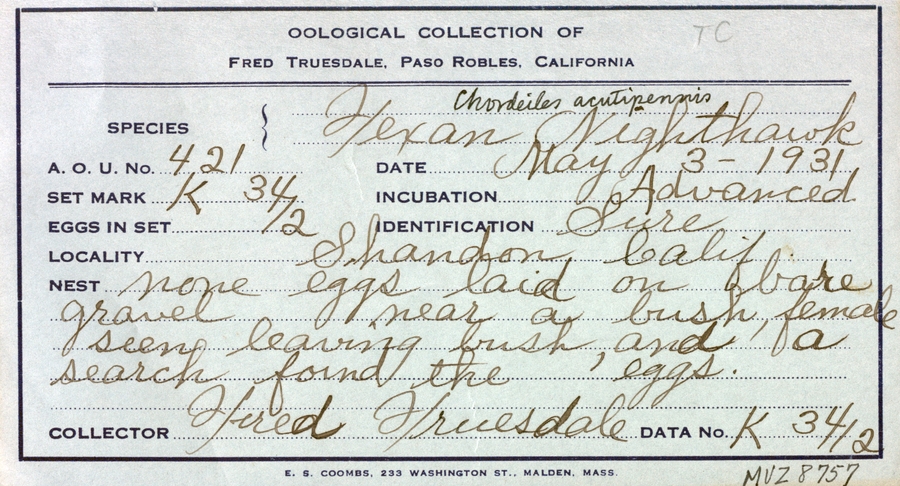 OOLOGICAL COLLECTION OF
TC
FRED TRUESDALE, PASO ROBLES, CALIFORNIA
Chordeiles acutipennis
SPECIES } Texan Nighthawk
A. O. U. No. 421 DATE May 3- 1931
SET MARK K 34/2 INCUBATION Advanced
EGGS IN SET 2 IDENTIFICATION Sure
LOCALITY Shandon, Calif
NEST none eggs laid on bare
gravel near a bush, female
seen leaving bush, and a
search found the eggs.
COLLECTOR Fred Truesdale DATA No. K 34/2
E. S. COOMBS, 233 WASHINGTON ST., MALDEN, MASS.
MVZ 8757